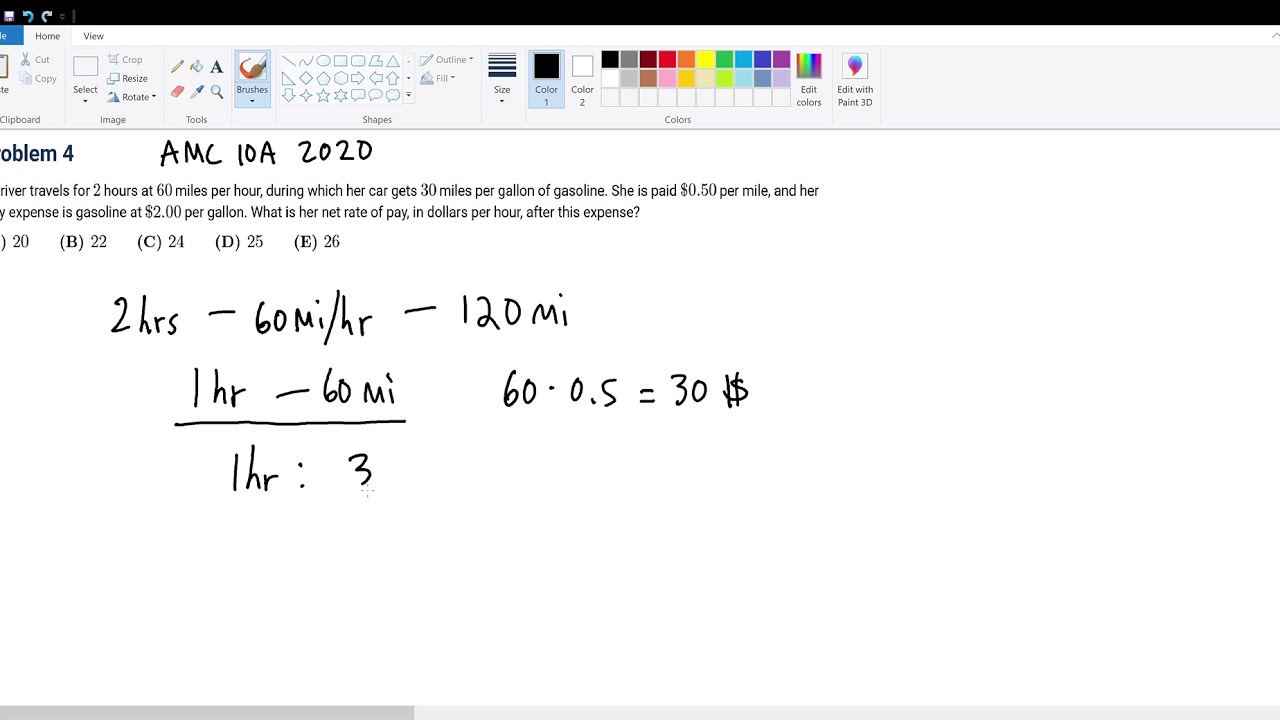 le Home View
Cut
Copy
ste
Clipboard
Select
Crop
Resize
Rotate
Image
A
Tools
Brushes
Shapes
Outline
Fill
Size
Color 1
Color 2
Colors
Edit colors
Edit with Paint 3D
oblem 4 AMC 10A 2020
river travels for 2 hours at 60 miles per hour, during which her car gets 30 miles per gallon of gasoline. She is paid $0.50 per mile, and her
y expense is gasoline at $2.00 per gallon. What is her net rate of pay, in dollars per hour, after this expense?
) 20 (B) 22 (C) 24 (D) 25 (E) 26
2hrs - 60mi/hr - 120 mi
1hr - 60 mi 60 · 0.5 = 30 $
1hr : 3